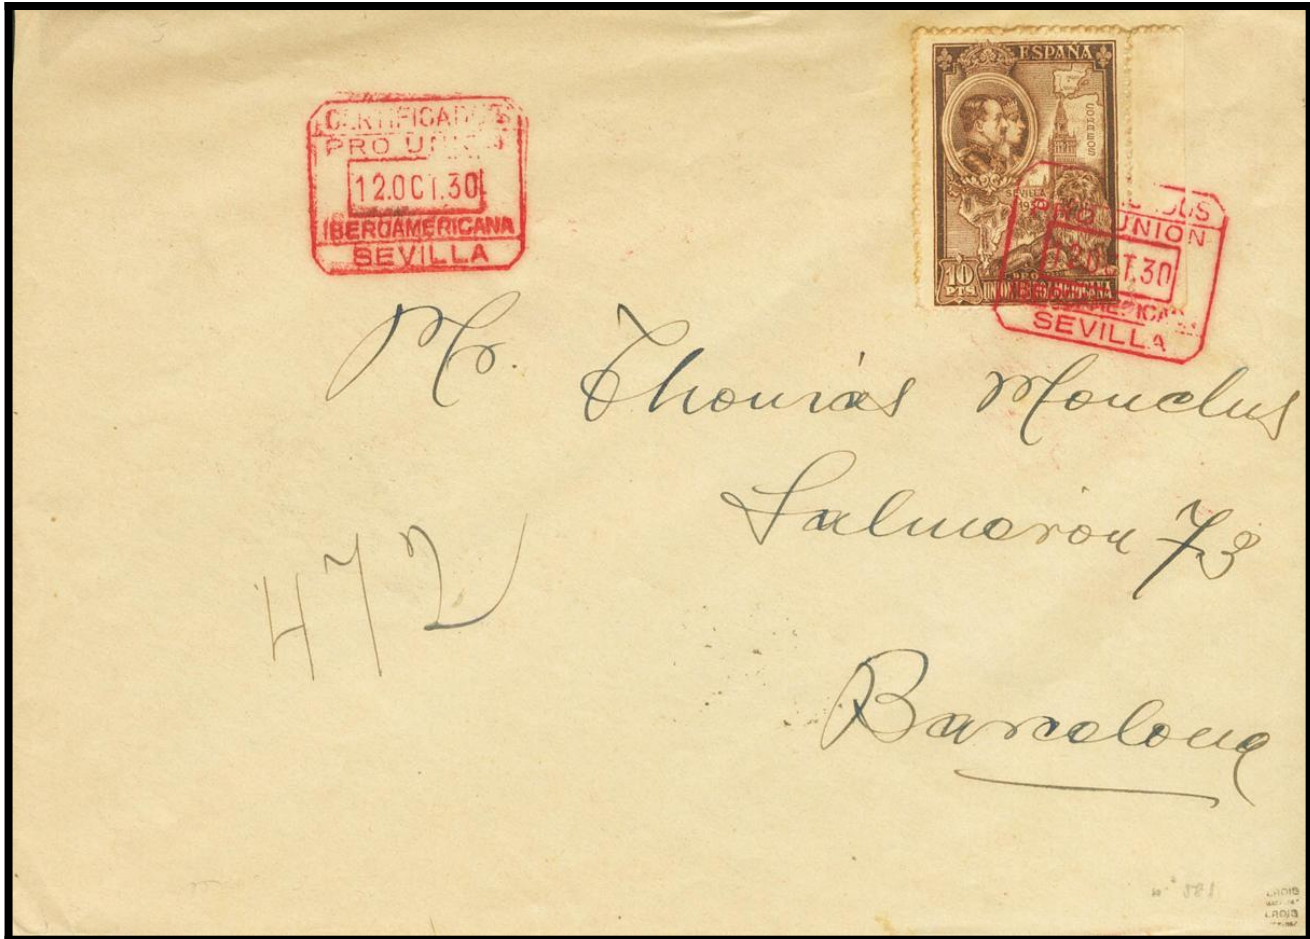 CERTIFICADOS
PRO UNION
12 OCT. 30
IBEROAMERICANA
SEVILLA
ESPAÑA
CORREOS
SEVILLA
10
PTS
PRO
UNION IBEROAMERICANA
PRO UNION
12 OCT. 30
IBEROAMERICANA
SEVILLA
Mr. Thomás Monclus
Salmerón 73
Barcelona
472
nº 581